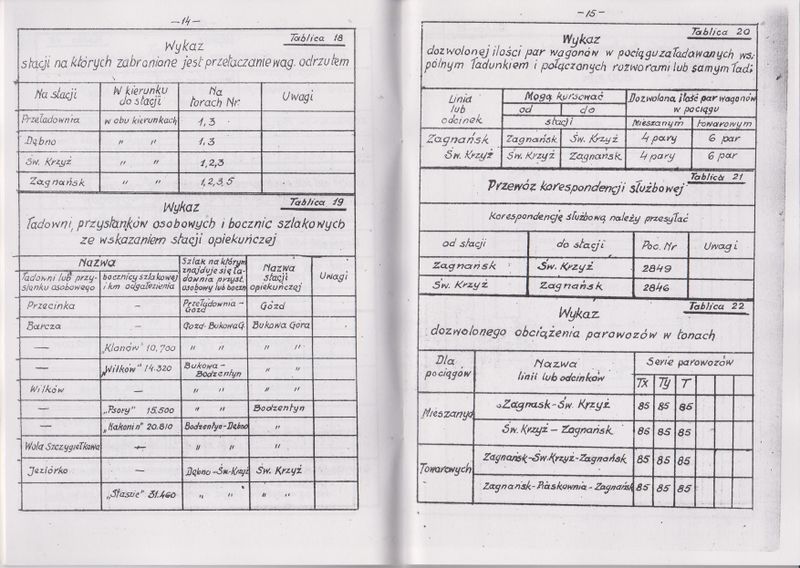 —14—
Tablica 18
Wykaz
stacji na których zabronione jest przetaczanie wag. odrzutem
Na stacji | W kierunku do stacji | Na torach Nr. | Uwagi
Przeładownia | w obu kierunkach | 1, 3
Dąbno | " " | 1, 3
Św. Krzyż | " " | 1,2,3
Zagnańsk | " " | 1,2,3,5
Tablica 19
Wykaz
ładowni, przystanków osobowych i bocznic szlakowych
ze wskazaniem stacji opiekuńczej
Nazwa | Szlak na którym znajduje się ładownia przyst. osobowy lub boczn. | Nazwa stacji opiekuńczej | Uwagi
ładowni lub przystanku osobowego | bocznicy szlakowej i km odgałęzienia
Przecinka | — | Przeładownia - Gózd | Gózd
Barcza | — | Gozd-Bukowa G. | Bukowa Góra
— | „Klonów" 10,700 | " " | " "
— | „Wilków" 14.320 | Bukowa - Bodzentyn | " "
Wilków | — | " " | " "
— | „Psary" 15.500 | " " | Bodzentyn
— | „Kakonin" 20.810 | Bodzentyn-Dębno | "
Wola Szczygiełkowa | — | " " " | "
Jeziórko | — | Dębno -Św.Krzyż | Św. Krzyż
„Staszic" 31.460 | " " | " "
—15—
Tablica 20
Wykaz
dozwolonej ilości par wagonów w pociągu załadowanych ws-
pólnym ładunkiem i połączonych rozworami lub samym ład;
Linia lub odcinek | Mogą kursować | Dozwolona ilość par wagonów w pociągu
od | do | stacji | mieszanym | towarowym
Zagnańsk | Zagnańsk | Św. Krzyż | 4 pary | 6 par
Św. Krzyż | Św. Krzyż | Zagnańsk | 4 pary | 6 par
Tablica 21
Przewóz korespondencji służbowej
Korespondencję służbową należy przesyłać
od stacji | do stacji | Poc. Nr | Uwagi
Zagnańsk | Św. Krzyż | 2849
Św. Krzyż | Zagnańsk | 2846
Tablica 22
Wykaz
dozwolonego obciążenia parowozów w tonach
Dla pociągów | Nazwa linii lub odcinków | Serie parowozów
Tx | Ty | T
Mieszanych | „Zagnask-Św. Krzyż | 85 | 85 | 85
Św. Krzyż — Zagnańsk | 85 | 85 | 85
Towarowych | Zagnańsk-Św.Krzyż-Zagnańsk | 85 | 85 | 85
Zagnańsk-Piaskownia-Zagnańsk | 85 | 85 | 85